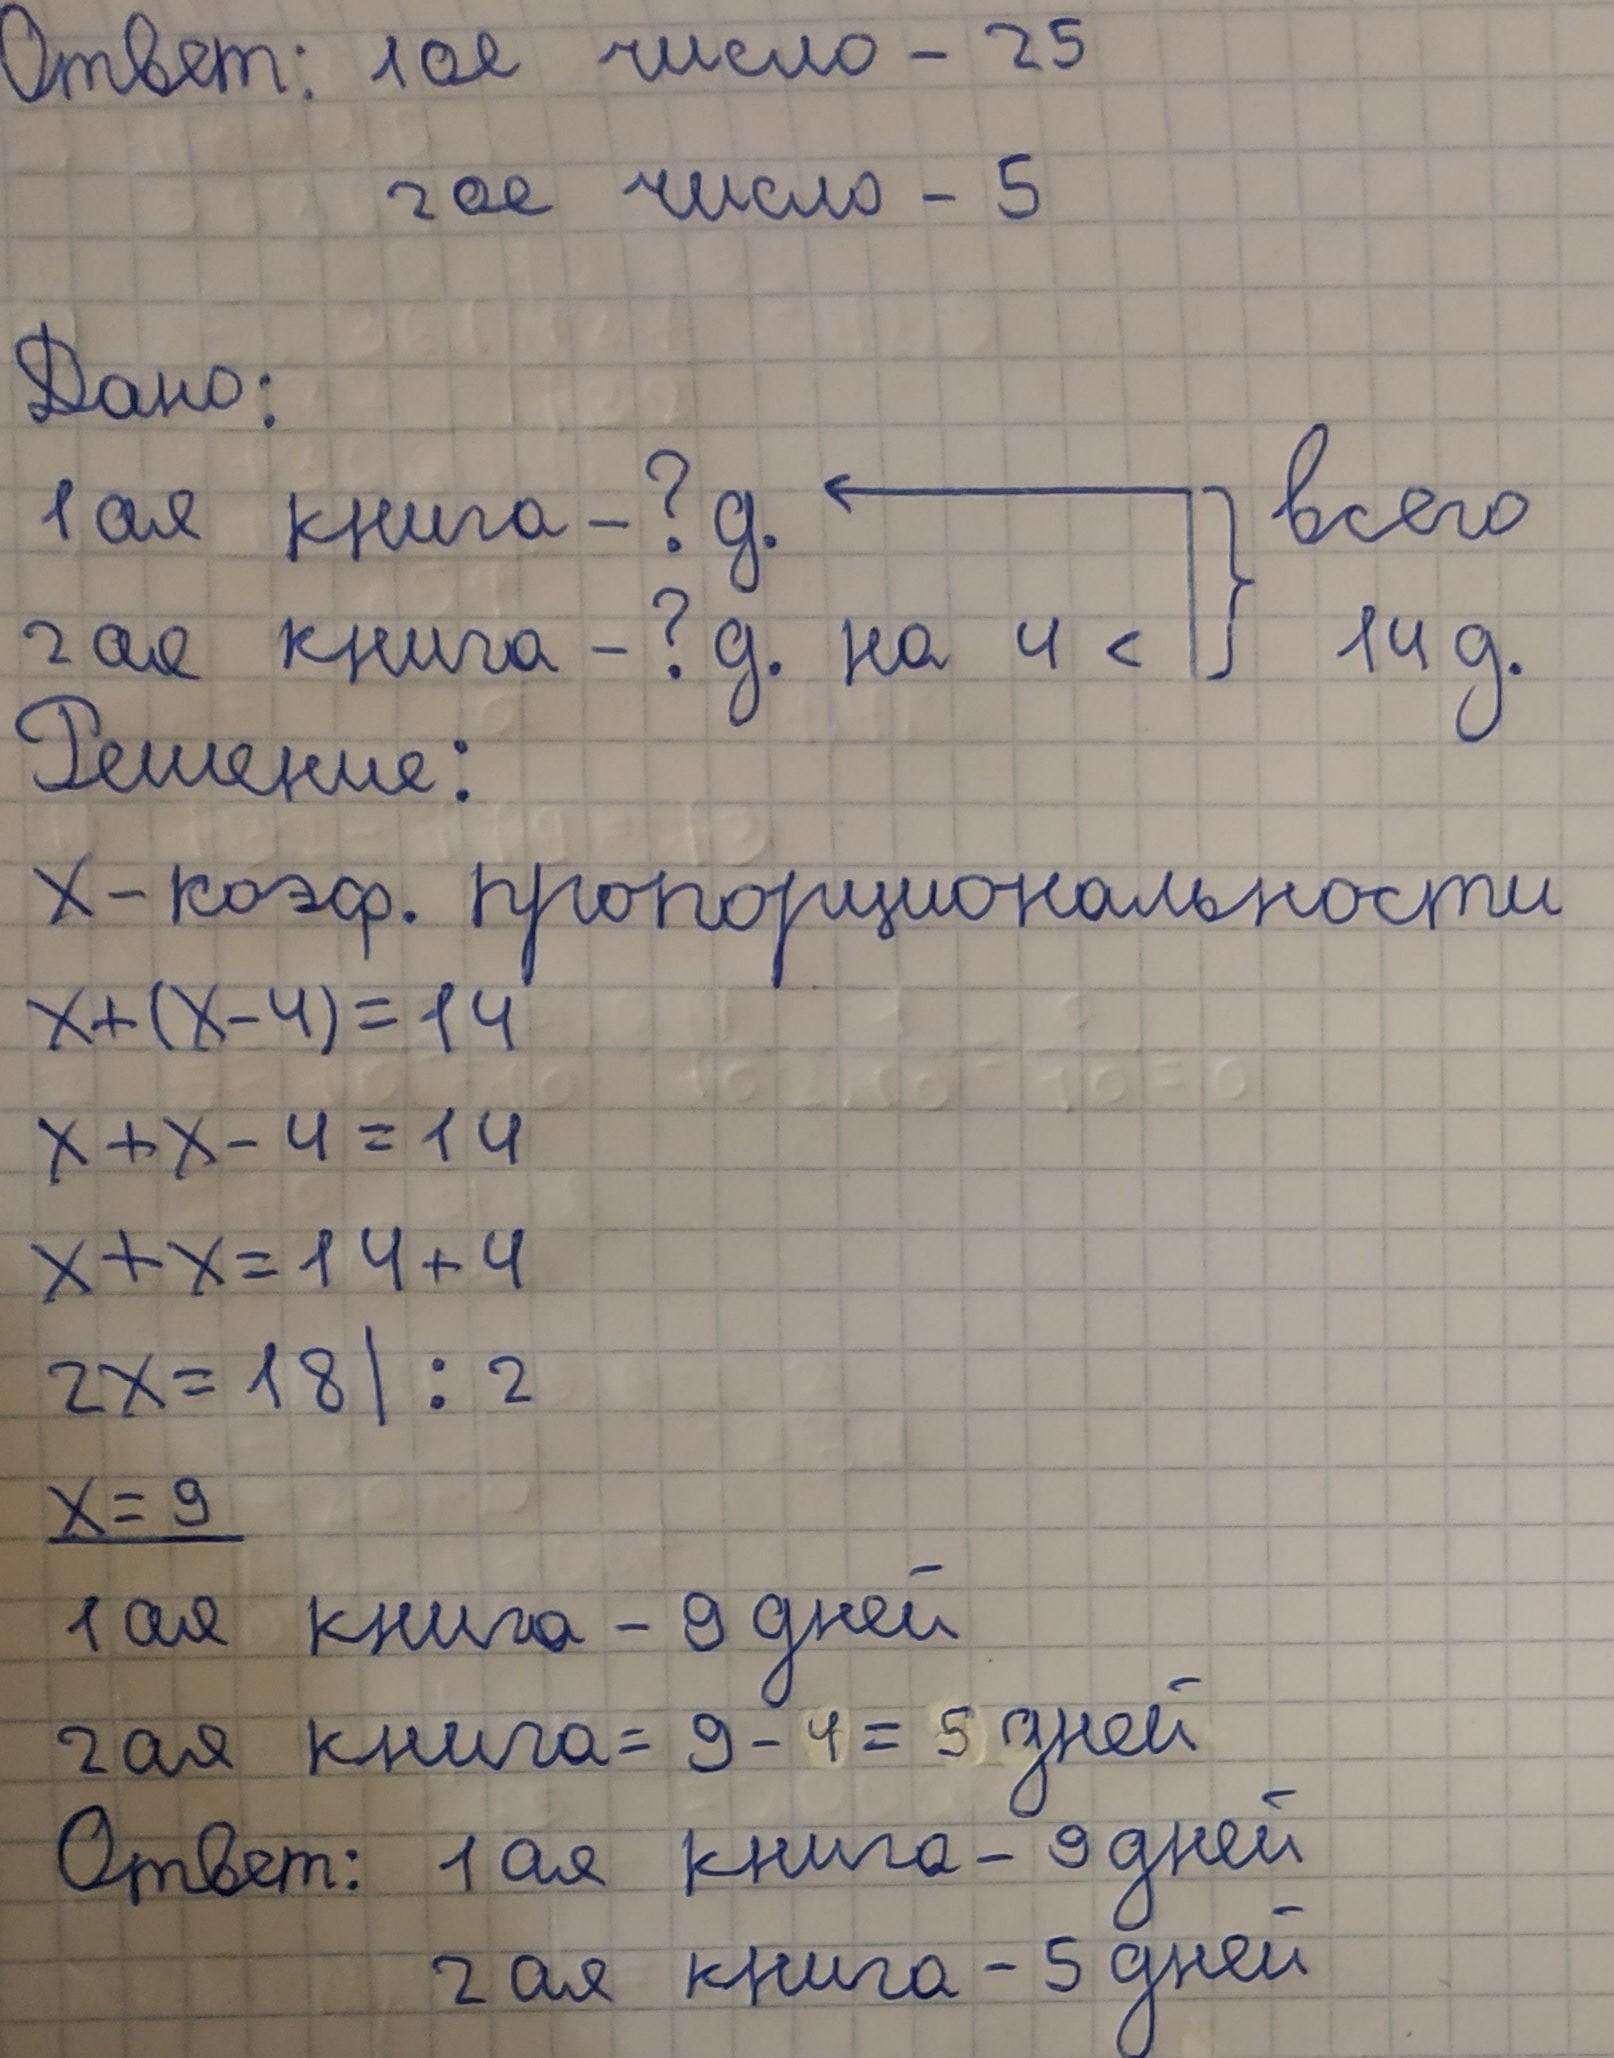 Ответ: 1ое число - 25
2ое число - 5
Дано:
1ая книга - ? д.
2ая книга - ? д. на 4 < } всего 14 д.
Решение:
х - коэф. пропорциональности
х+(х-4)=14
х+х-4=14
х+х=14+4
2х=18| : 2
х=9
1ая книга - 9 дней
2ая книга = 9-4=5 дней
Ответ: 1ая книга - 9 дней
2ая книга - 5 дней